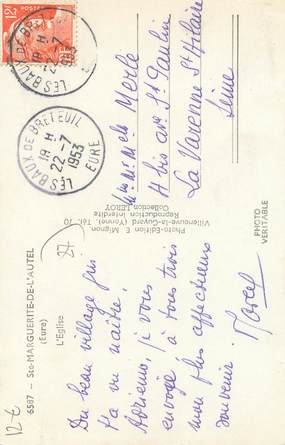 6587 - Ste-MARGUERITE-DE-L'AUTEL
(Eure)
L'Eglise
27
Du beau village qui
t'a vu naître,
j'vous
envoie à tous trois
mon plus affectueux
souvenir
Photo-Edition E. Mignon
Villeneuve-la-Guyard (Yonne) Tél. 70
Reproduction interdite
Collection LEROY
PHOTO
VERITABLE
Merle
4 bis av. St Paulin
La Varenne St Hilaire
Seine
12 F
POSTES
LES BAUX DE BRETEUIL
18 H
22-7
1953
EURE
LES BAUX DE BRET
18 H
22-7
12 €